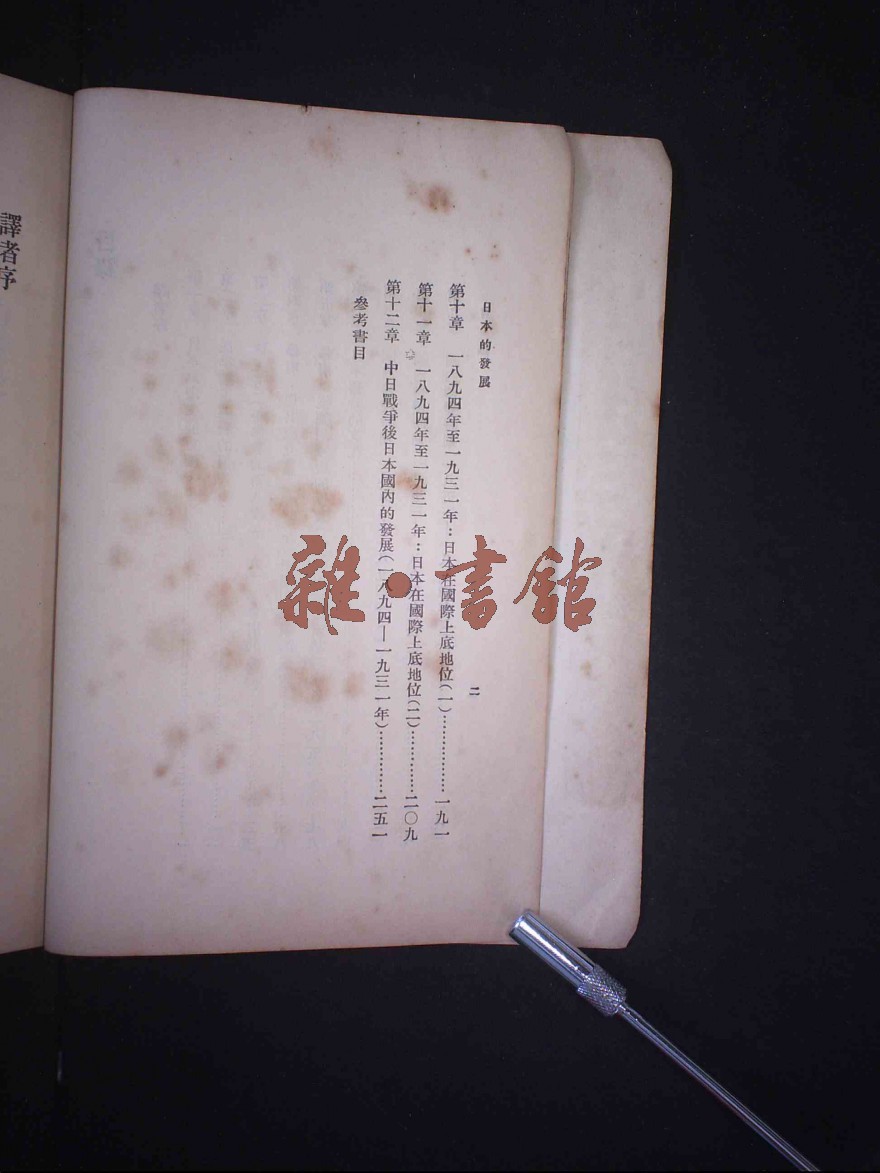 日本的發展
二
第十章 一八九四年至一九三一年：日本在國際上底地位(一)……………一九一
第十一章 一八九四年至一九三一年：日本在國際上底地位(二)……………二〇九
第十二章 中日戰爭後日本國內的發展(一八九四—一九三一年)……………二五一
參考書目
譯者序
雜·書館